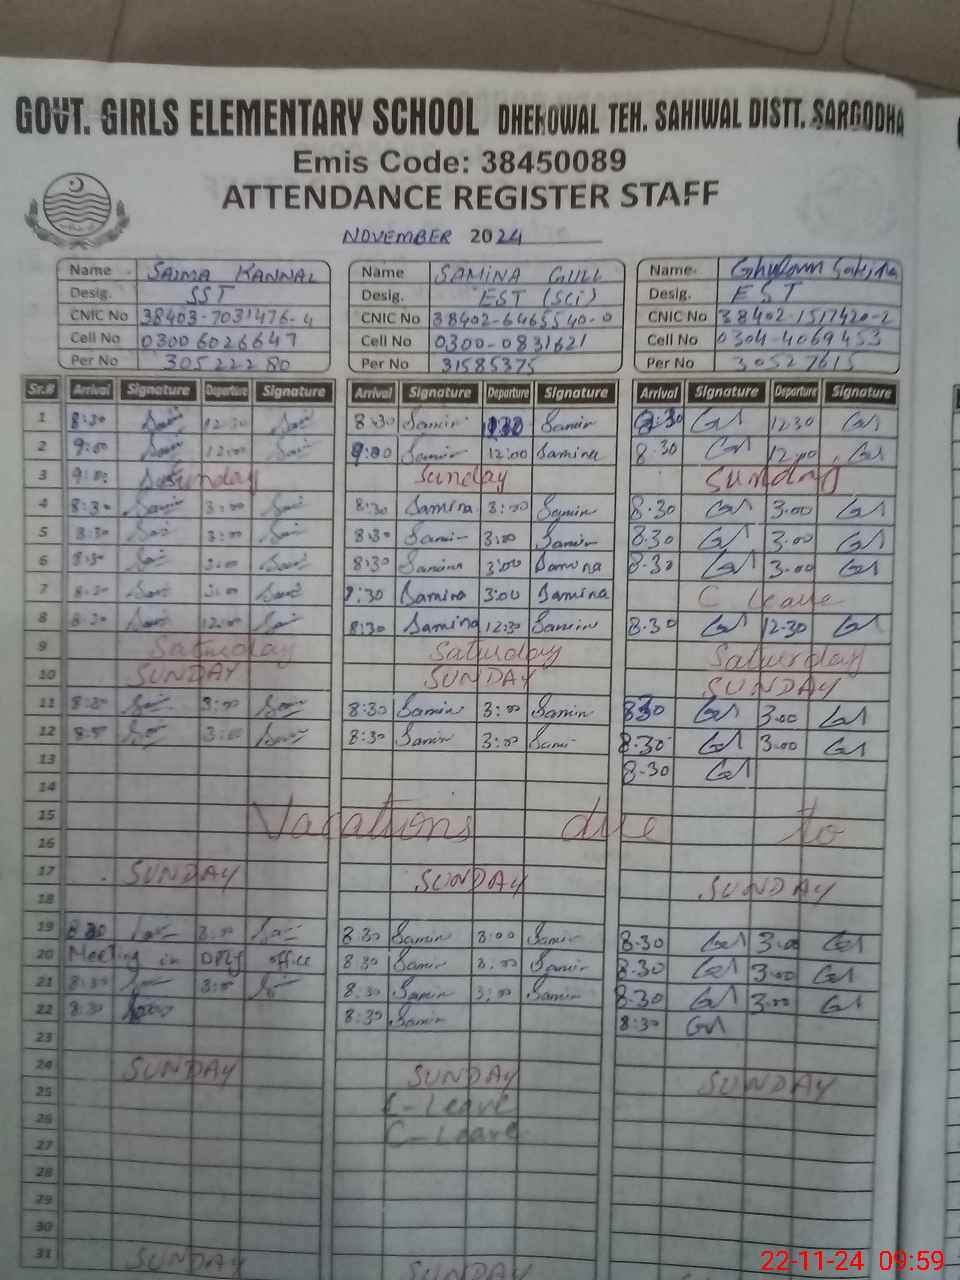 GOVT. GIRLS ELEMENTARY SCHOOL DHEROWAL TEH. SAHIWAL DISTT. SARGODHA
Emis Code: 38450089
ATTENDANCE REGISTER STAFF
NOVEMBER 2024
Name SAIMA KANNAL Name SAMINA GULL Name Ghulam Sakina
Desig. SST Desig. EST (Sci) Desig. EST
CNIC No 38403-7031476-4 CNIC No 38402-6465540-0 CNIC No 38402-1517420-2
Cell No 03006026647 Cell No 0300-0831621 Cell No 0304-4069453
Per No 30522280 Per No 31585375 Per No 30527615
Sr.# Arrival Signature Departure Signature Arrival Signature Departure Signature Arrival Signature Departure Signature
1 8:30 12:30 8:30 Samin Samin 8:30 12.30
2 9:00 12:00 9:00 Samin 12:00 Samina 8.30 12.00
3 9:00 Sunday Sunday Sunday
4 8:30 3:00 8:30 Samina 3:00 Samin 8.30 3.00
5 8:30 3:00 8:30 Samin 3:00 Samin 8.30 3.00
6 8:30 3:00 8:30 Samina 3:00 Samina 8.30 3.00
7 8:30 3:00 8:30 Samina 3:00 Samina C leave
8 8:30 12:00 8:30 Samina 12:30 Samin 8.30 12.30
9 Saturday Saturday Saturday
10 SUNDAY SUNDAY SUNDAY
11 8:30 3:00 8:30 Samin 3:00 Samin 830 3.00
12 3:00 8:30 Samin 3:00 Samin 8.30 3.00
13 8.30
14
15 Vacations due to
16
17 SUNDAY SUNDAY SUNDAY
18
19 8:30 3:00 8:30 Samin 3:00 Samin 8.30 3.00
20 Meeting in office 8:30 Samin 3:00 Samin 8.30 3.00
21 8:30 3:00 8:30 Samin 3:00 Samin 8.30 3.00
22 8:30 8:30 Samin 8:30
23
24 SUNDAY SUNDAY SUNDAY
25 C-Leave
26 C-Leave
27
28
29
30
31 SUNDAY SUNDAY
22-11-24 09:59